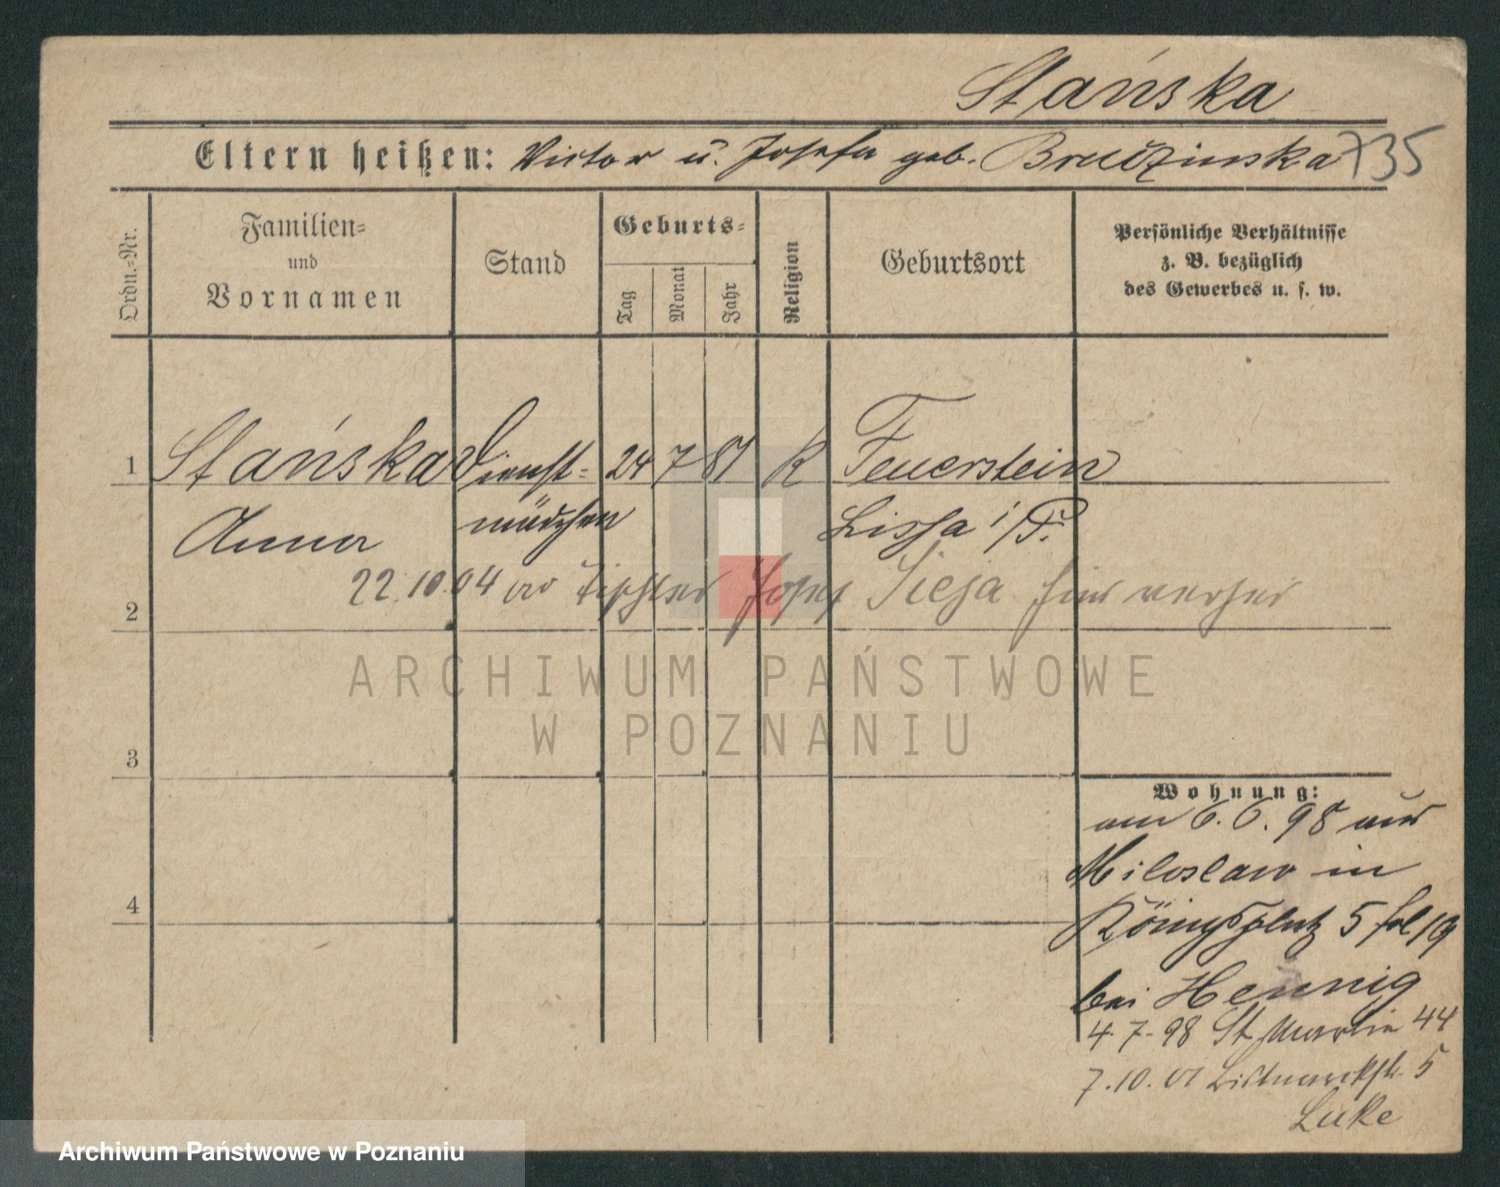 Stańska
Eltern heißen: Victor u. Josefa geb. Brudzinska 735
Ordn.-Nr.
Familien- und Vornamen
Stand
Geburts-
Tag
Monat
Jahr
Religion
Geburtsort
Persönliche Verhältnisse
z. B. bezüglich
des Gewerbes u. s. w.
1 Stańska Dienst- 24 7 81 K Feuerstein
Anna mädchen Lissa i/P.
22.10.04 Tischler Josef Sieja
2
3
4
Wohnung:
am 6.6.98 aus
Miloslaw in
Königsplatz 5
bei Hennig
4.7.98 St Martin 44
7.10.01 Bismarckstr. 5
Luke
ARCHIWUM PAŃSTWOWE
W POZNANIU
Archiwum Państwowe w Poznaniu